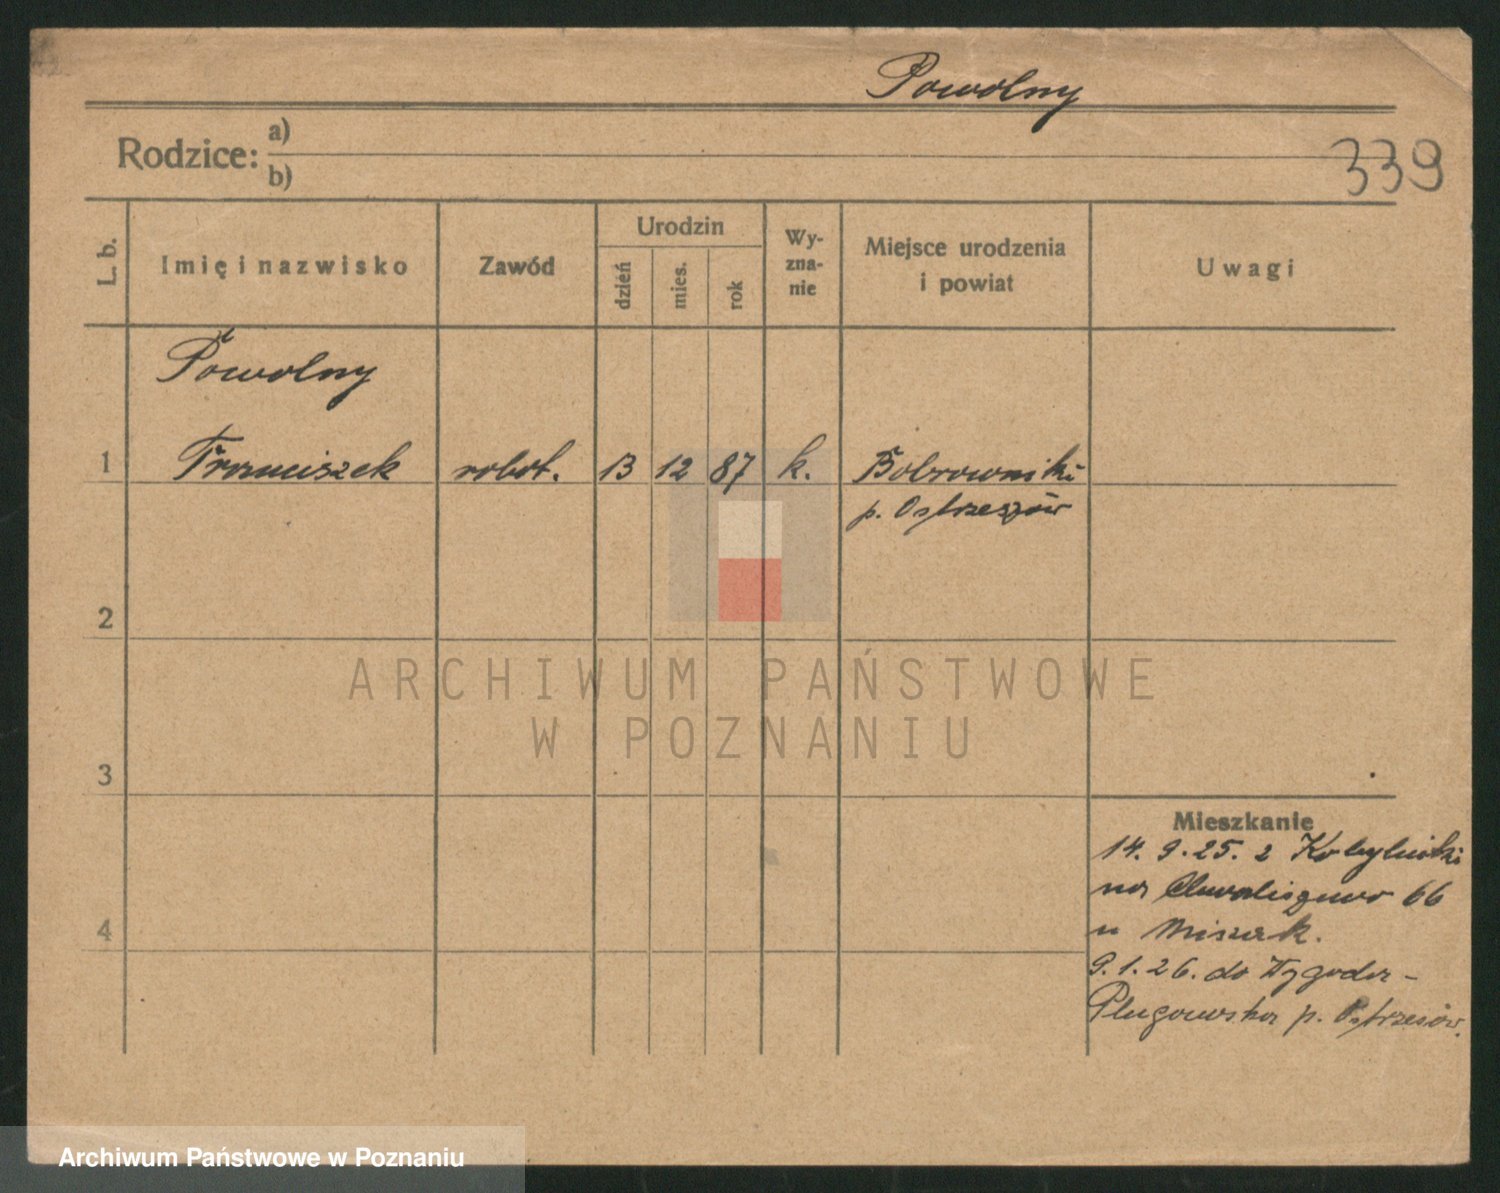 Powolny
Rodzice: a)
b)
339
L. b.
Imię i nazwisko
Zawód
Urodzin
dzień
mies.
rok
Wy-
zna-
nie
Miejsce urodzenia
i powiat
Uwagi
Powolny
1 Franciszek robot. 13 12 87 k. Bobrowniki
p. Ostrzeszów
2
3
4
Mieszkanie
14. 9. 25. z Kobylnicki
na Chwaliszewo 66
u Misiak.
9. 1. 26. do Wygoda-
Plugawska p. Ostrzeszów.
ARCHIWUM PAŃSTWOWE
W POZNANIU
Archiwum Państwowe w Poznaniu